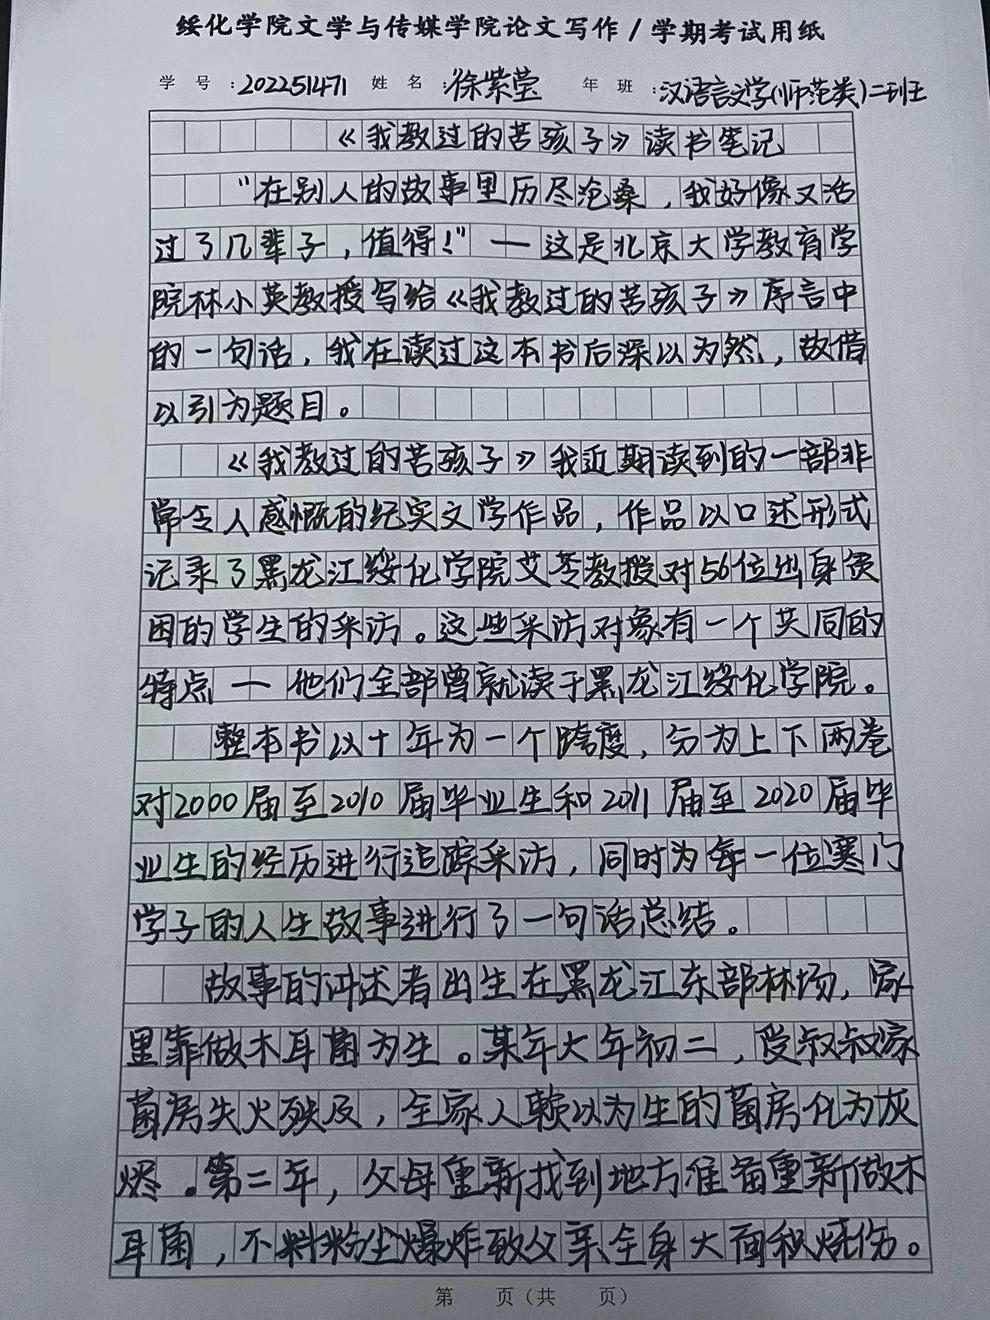 绥化学院文学与传媒学院论文写作/学期考试用纸
学号:202251471 姓名:徐紫莹 年班:汉语言文学(师范类)二班王
《我教过的苦孩子》读书笔记
"在别人的故事里历尽沧桑,我好像又活
过了几辈子,值得!"—这是北京大学教育学
院林小英教授写给《我教过的苦孩子》序言中
的一句话,我在读过这本书后深以为然,故借
以引为题目。
《我教过的苦孩子》我近期读到的一部非
常令人感慨的纪实文学作品,作品以口述形式
记录了黑龙江绥化学院艾苓教授对56位出身贫
困的学生的采访。这些采访对象有一个共同的
特点—他们全部曾就读于黑龙江绥化学院。
整本书以十年为一个跨度,分为上下两卷
对2000届至2010届毕业生和2011届至2020届毕
业生的经历进行追踪采访,同时为每一位寒门
学子的人生故事进行了一句话总结。
故事的讲述者出生在黑龙江东部林场,家
里靠做木耳菌为生。某年大年初二,受叔叔家
菌房失火殃及,全家人赖以为生的菌房化为灰
烬。第二年,父母重新找到地方准备重新做木
耳菌,不料粉尘爆炸致父亲全身大面积烧伤。
第 页(共 页)